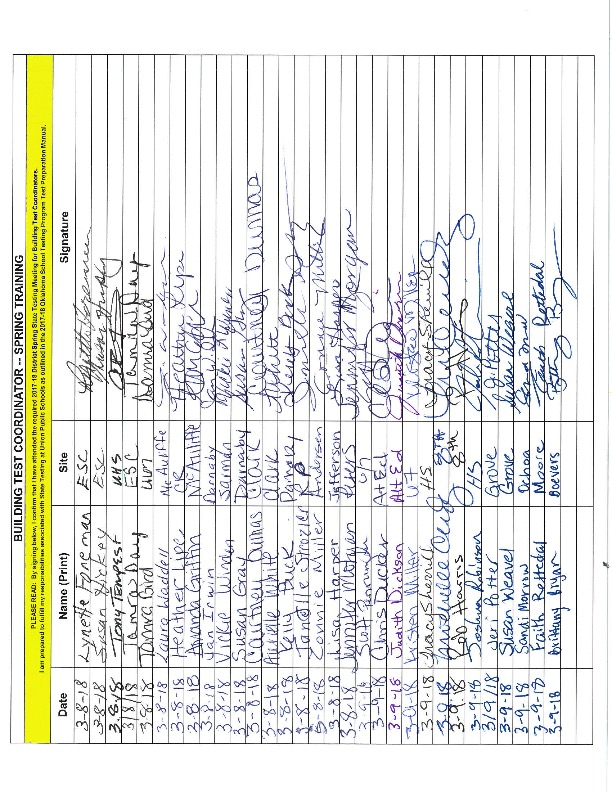 BUILDING TEST COORDINATOR -- SPRING TRAINING
PLEASE READ: By signing below, I confirm that I have attended the required 2017-18 District Spring State Testing Meeting for Building Test Coordinators.
I am prepared to fulfill my responsibilities associated with State Testing at Union Public Schools as outlined in the 2017-18 Oklahoma School Testing Program Test Preparation Manual.
Date Name (Print) Site Signature
3-8-18 Lynette Fineman ESC
3-8-18 Susan Hickey ESC
3-8-18 Tony Tempest UHS
3/8/18 Tamra Day ESC Tamra Day
3-8-18 Tamra Bird Tamra Bird
3-8-18 Laura Waddell McAuliffe
3-8-18 Heather Lipe CR Heather Lipe
3-8-18 Amanda Griffin McAuliffe
3-8-18 Dan Irwin Darnaby
3-8-18 Vickie Jarman
3-8-18 Susan Gray Darnaby
3-8-18 Courtney Dumas Clark Courtney Dumas
3-8-18 Arielle White Clark
3-8-18 Kelly Buck Darnaby
3-8-18 Janelle Strozier
3-8-18 Connie Miller Andersen
3-8-18 Lisa Harper Jefferson
3-8-18 Jennifer Morgan Peters Jennifer Morgan
3-9-18 Scott
3-9-18 Chris Ducker Alt Ed
3-9-18 Judith Dickson Alt Ed
3-9-18 Kristen Miller U7 Kristen Miller
3-9-18 Traci Sherrill HS Traci Sherrill
3-9-18 8th
3-9-18 Harris 8th
3-9-18 Joshua Robinson HS
3/9/18 Jeri Potter Grove J. Potter
3-9-18 Susan Weaver Grove Susan Weaver
3-9-18 Sandi Morrow Ochoa
3-9-18 Faith Rettedal Moore Faith Rettedal
3-9-18 Brittany Bryan Boevers